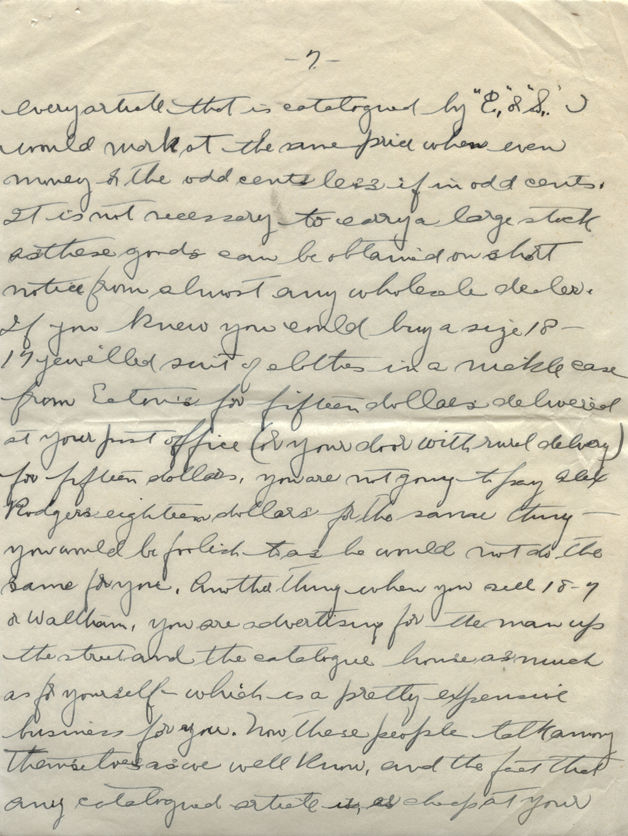 -7-
every article that is catalogued by "E," & "S." I
would mark at the same price when even
money & the odd cents less if in odd cents.
It is not necessary to carry a large stock
as these goods can be obtained on short
notice from almost any wholesale dealer.
If you knew you could buy a size 18-
17 jewelled suit of clothes in a nickle case
from Eaton's for fifteen dollars delivered
at your post office (or your door with rural delvey)
for fifteen dollars, you are not going to pay Alex
Rodgers eighteen dollars for the same thing —
you would be foolish to as he would not do the
same for you. Another thing when you sell 18-7
or Waltham, you are advertising for the man up
the street and the catalogue house as much
as for yourself - which is a pretty expensive
business for you. Now these people talk among
themselves as we well know, and the fact that
any catalogued article is, as cheap at your